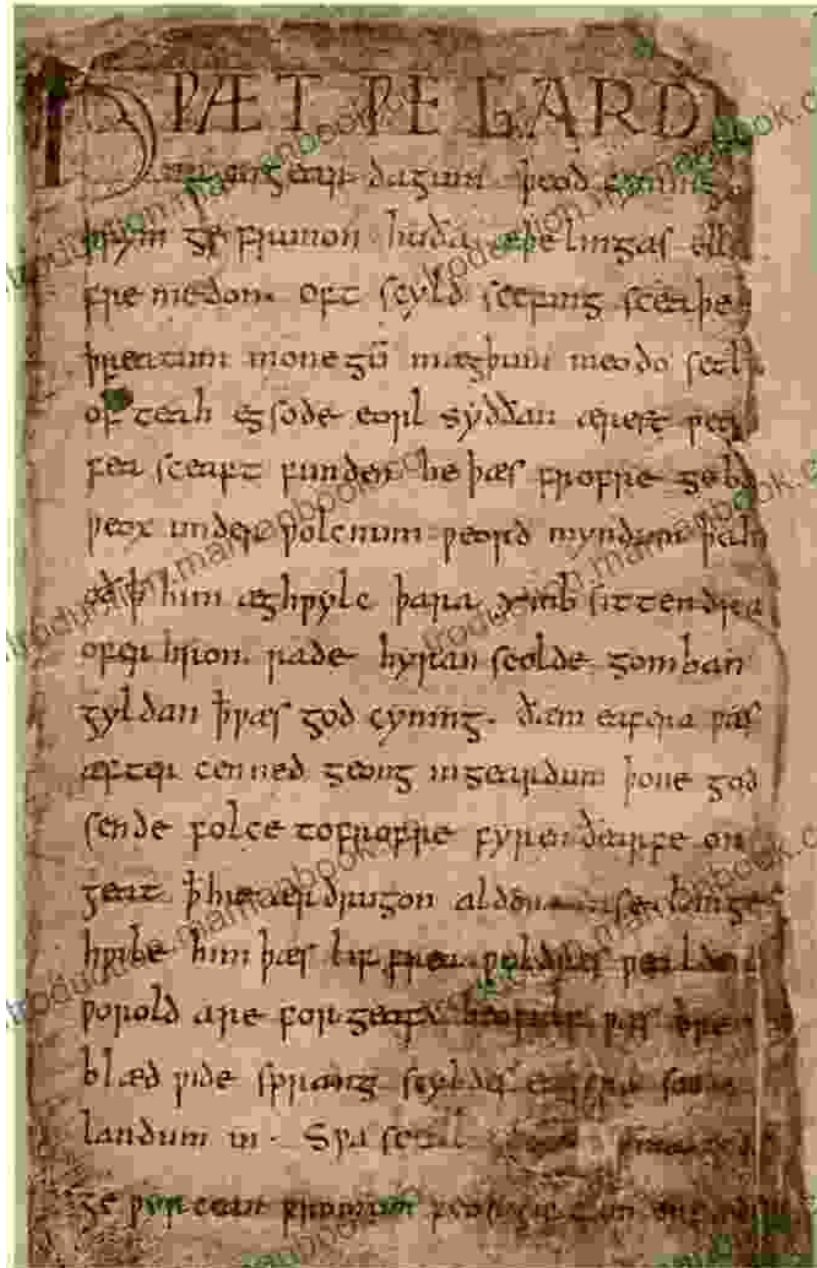 HǷÆT ǷE GARD
ingear dagum. þeod cyning
þrym ge frunon huða æþelingas elle
fre medon. oft scyld scefing sceaþe
þreatum monegū mægþum meodo setl
of teah egsode eorl syððan ærest ƿea
fea sceaft funden he þæs frofre geba
ƿeox under ƿolcnum ƿeorð myndum þah
oð ꝥ him æghƿylc þara ymb sittendra
ofer hron rade hyran scolde gomban
gyldan ꝥ ƿæs god cyning. ðæm eafera ƿæs
æfter cenned geong ingeardum þone god
sende folce tofrofre fyren ðearfe on
geat ꝥ hie ær drugon lange
hƿile him þæs lif frea ƿuldres ƿealdend
ƿorold are for geaf beoƿulf ƿæs breme
blæd ƿide sprang scyldes eafera
landum in. Sƿa sceal
ge ƿyrcean fromum feoh giftum on